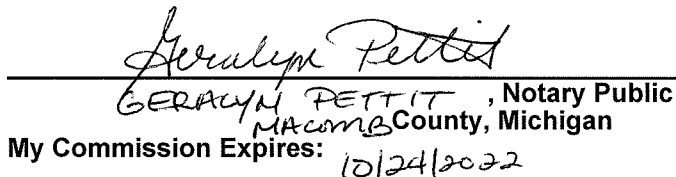 Geralyn Pettit
GERALYN PETTIT , Notary Public
MACOMB County, Michigan
My Commission Expires: 10/24/2022